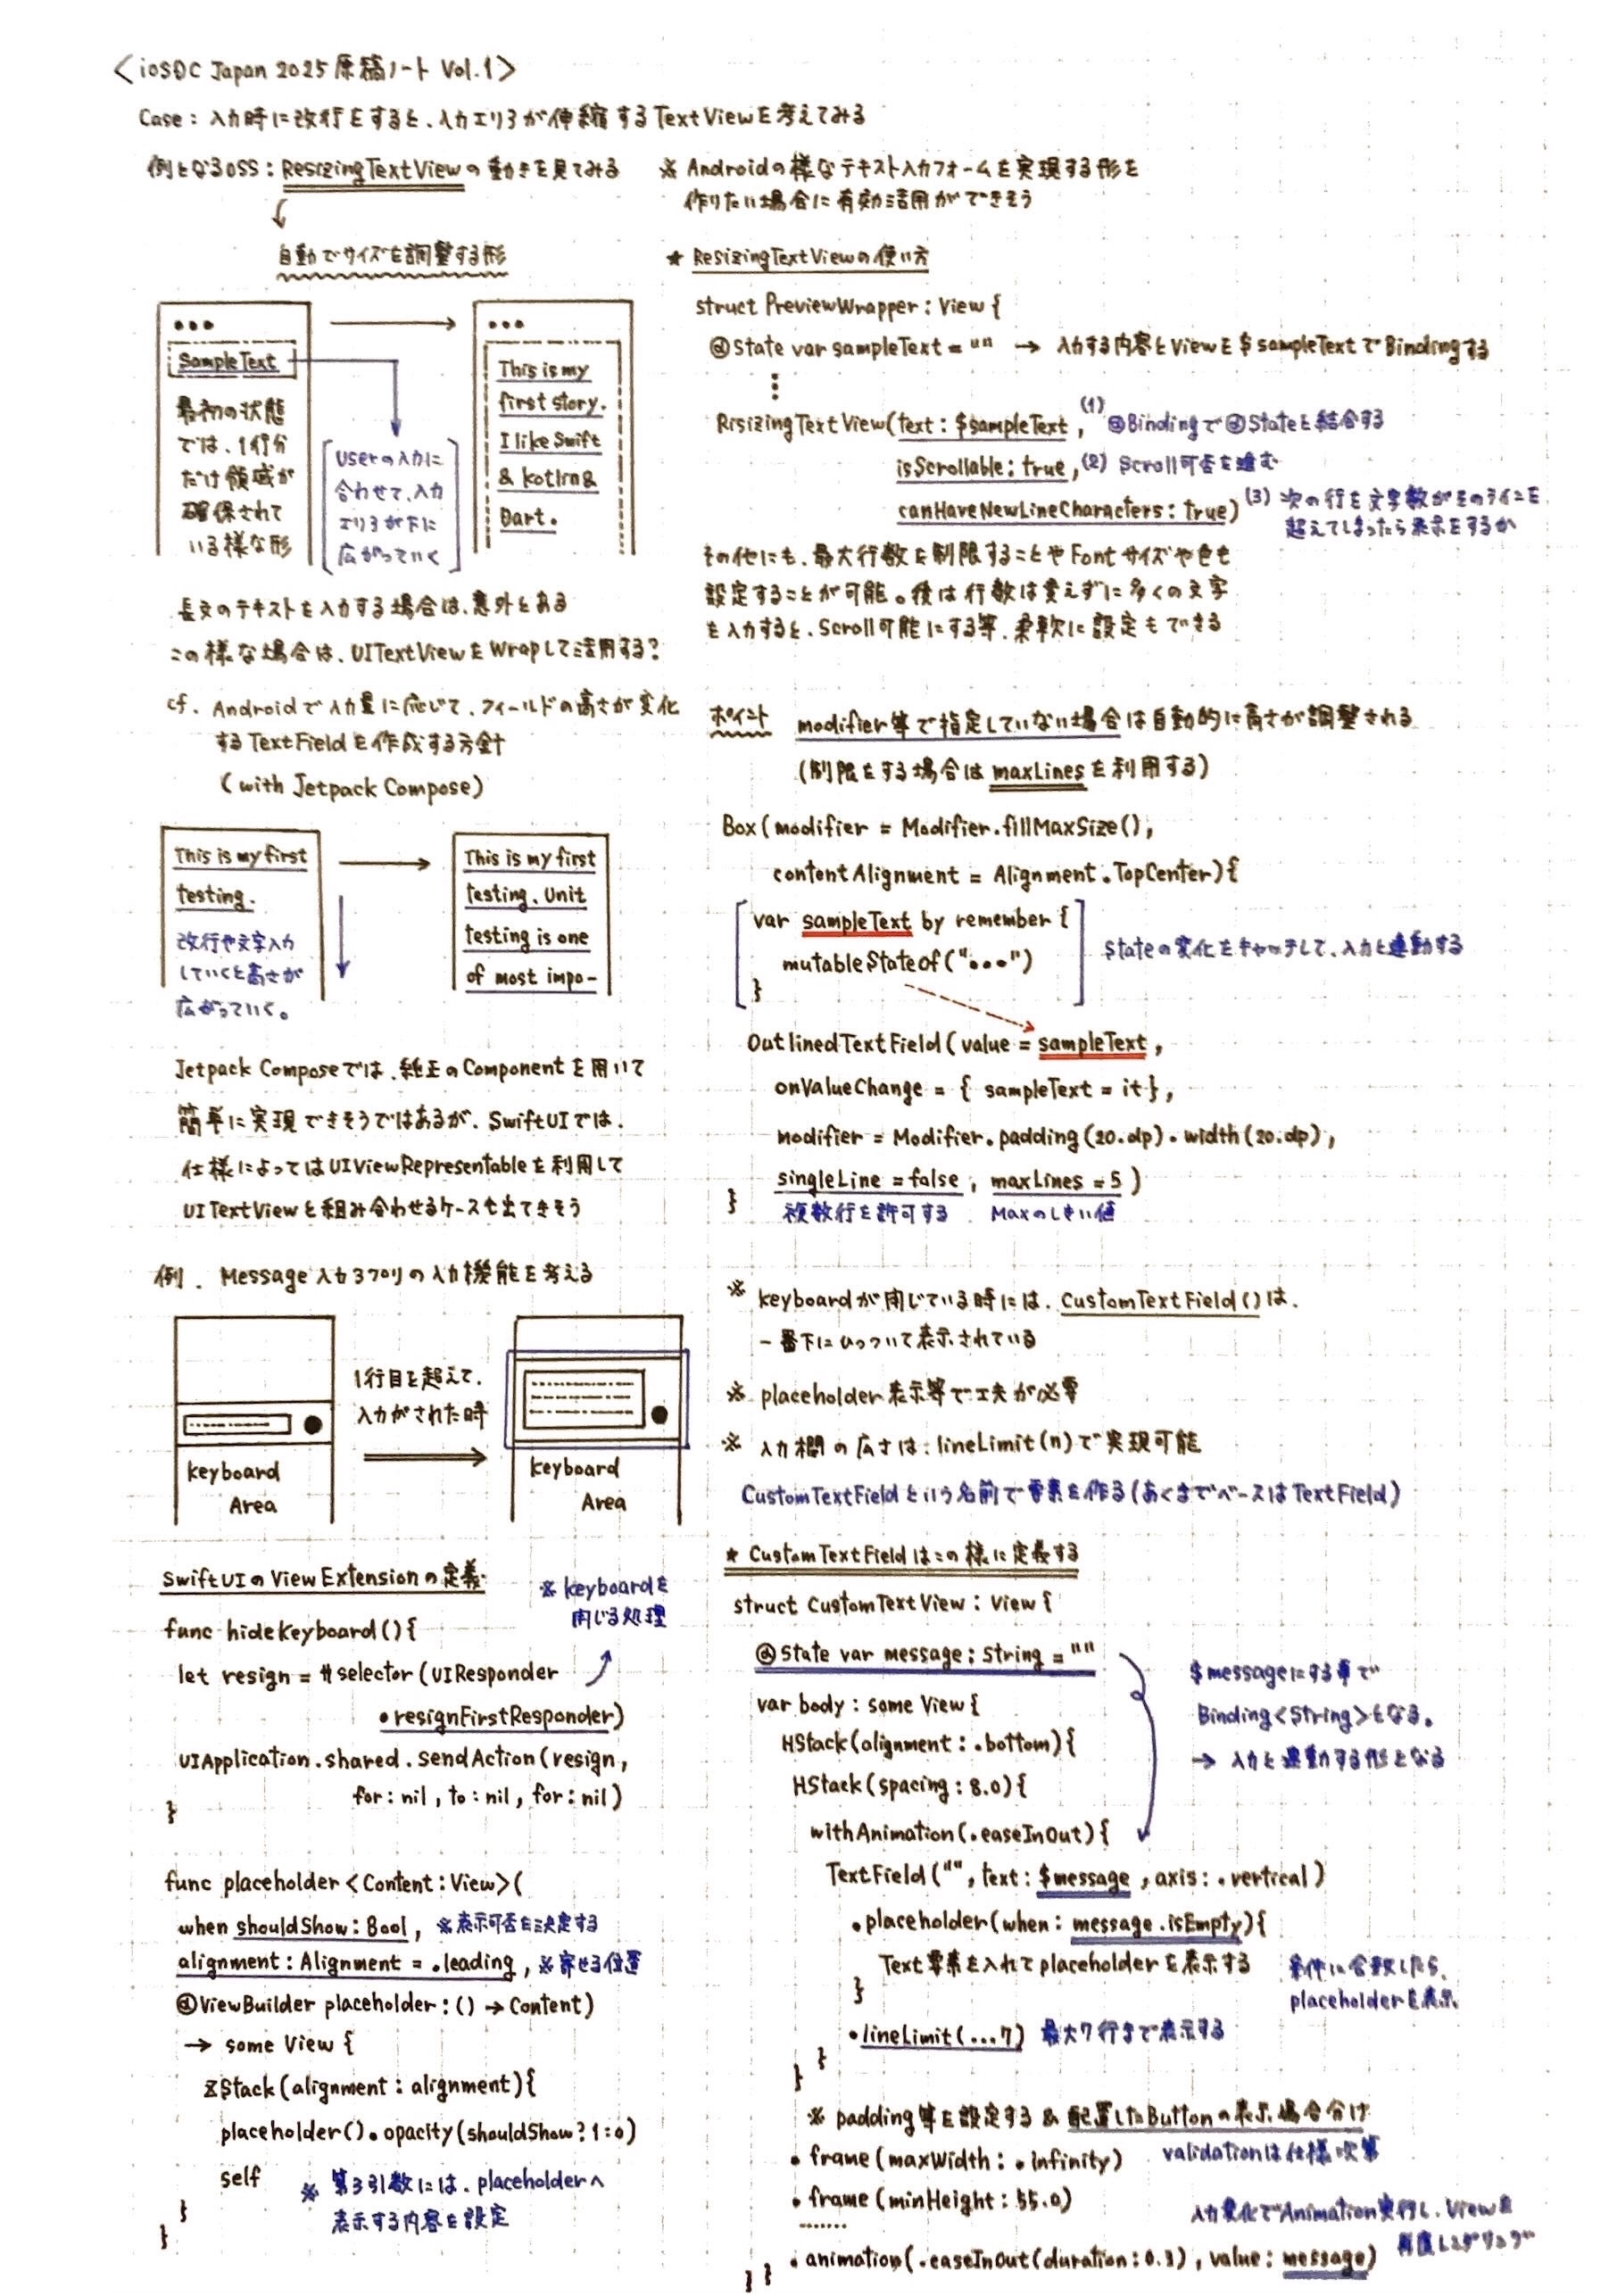 <iOSDC Japan 2025 原稿ノート Vol.1>
Case : 入力時に改行をすると、入力エリアが伸縮するTextViewを考えてみる
例となるOSS : ResizingTextViewの動きを見てみる
自動でサイズを調整する形
SampleText
最初の状態
では、1行分
だけ領域が
確保されて
いる様な形
Userの入力に
合わせて、入力
エリアが下に
広がっていく
This is my
first story.
I like Swift
& kotlin&
Dart.
長文のテキストを入力する場合は、意外とある
この様な場合は、UITextViewをWrapして活用する?
cf. Androidで入力量に応じて、フィールドの高さが変化
するTextFieldを作成する方針
(with Jetpack Compose)
This is my first
testing.
改行や文字入力
していくと高さが
広がっていく。
This is my first
testing. Unit
testing is one
of most impo-
Jetpack Composeでは、純正のComponentを用いて
簡単に実現できそうではあるが、SwiftUIでは、
仕様によってはUIViewRepresentableを利用して
UITextViewと組み合わせるケースも出てきそう
例. Message入力アプリの入力機能を考える
keyboard
Area
1行目を超えて、
入力がされた時
keyboard
Area
SwiftUIのView Extensionの定義
※ keyboardを
閉じる処理
func hidekeyboard(){
let resign = #selector(UIResponder
.resignFirstResponder)
UIApplication.shared.sendAction(resign,
for: nil, to: nil, for: nil)
}
func placeholder<Content: View>(
when shouldShow: Bool, ※表示可否を決定する
alignment: Alignment = .leading, ※寄せる位置
@ViewBuilder placeholder: () → Content)
→ some View {
ZStack(alignment: alignment){
placeholder().opacity(shouldShow? 1:0)
self
※ 第3引数には、placeholderへ
表示する内容を設定
}
}
※ Androidの様なテキスト入力フォームを実現する形を
作りたい場合に有効活用ができそう
★ ResizingTextViewの使い方
struct PreviewWrapper: View {
@State var sampleText = "" → 入力する内容とViewを$sampleTextでBindingする
RisizingTextView(text: $sampleText, (1) @Bindingで@Stateと結合する
isScrollable: true, (2) Scroll可否を
canHaveNewLineCharacters: true) (3) 次の行を文字数がそのラインを
超えてしまったら表示をするか
その他にも、最大行数を制限することやFontサイズや色も
設定することが可能。後は行数は変えずに多くの文字
を入力すると、Scroll可能にする等、柔軟に設定もできる
ポイント modifier等で指定していない場合は自動的に高さが調整される
(制限をする場合はmaxLinesを利用する)
Box(modifier = Modifier.fillMaxSize(),
contentAlignment = Alignment.TopCenter){
var sampleText by remember {
mutableStateof("...")
}
Stateの変化をキャッチして、入力と連動する
OutlinedTextField(value = sampleText,
onValueChange = { sampleText = it},
modifier = Modifier.padding(20.dp).width(20.dp),
singleLine = false, maxLines = 5)
}
複数行を許可する Maxのしきい値
※ keyboardが閉じている時には、CustomTextField()は、
一番下にひっついて表示されている
※ placeholder表示等で工夫が必要
※ 入力欄の広さは、lineLimit(n)で実現可能
CustomTextFieldという名前で要素を作る(あくまでベースはTextField)
★ CustomTextFieldはこの様に定義する
struct CustomTextView: View {
@State var message: String = ""
var body: some View {
HStack(alignment: .bottom){
HStack(spacing: 8.0){
withAnimation(.easeInOut){
$messageにする事で
Binding<String>となる。
→ 入力と連動する形となる
TextField("", text: $message, axis: .vertical)
.placeholder(when: message.isEmpty){
Text要素を入れてplaceholderを表示する
}
条件に合致したら、
placeholderを表示
.lineLimit(...7) 最大7行まで表示する
}
}
※ padding等を設定する & 配置したButtonの表示場合分け
.frame(maxWidth: .infinity) validationは仕様次第
.frame(minHeight: 55.0)
入力変化でAnimation実行し、Viewを
再度レンダリング
.animation(.easeInOut(duration: 0.3), value: message)
} }